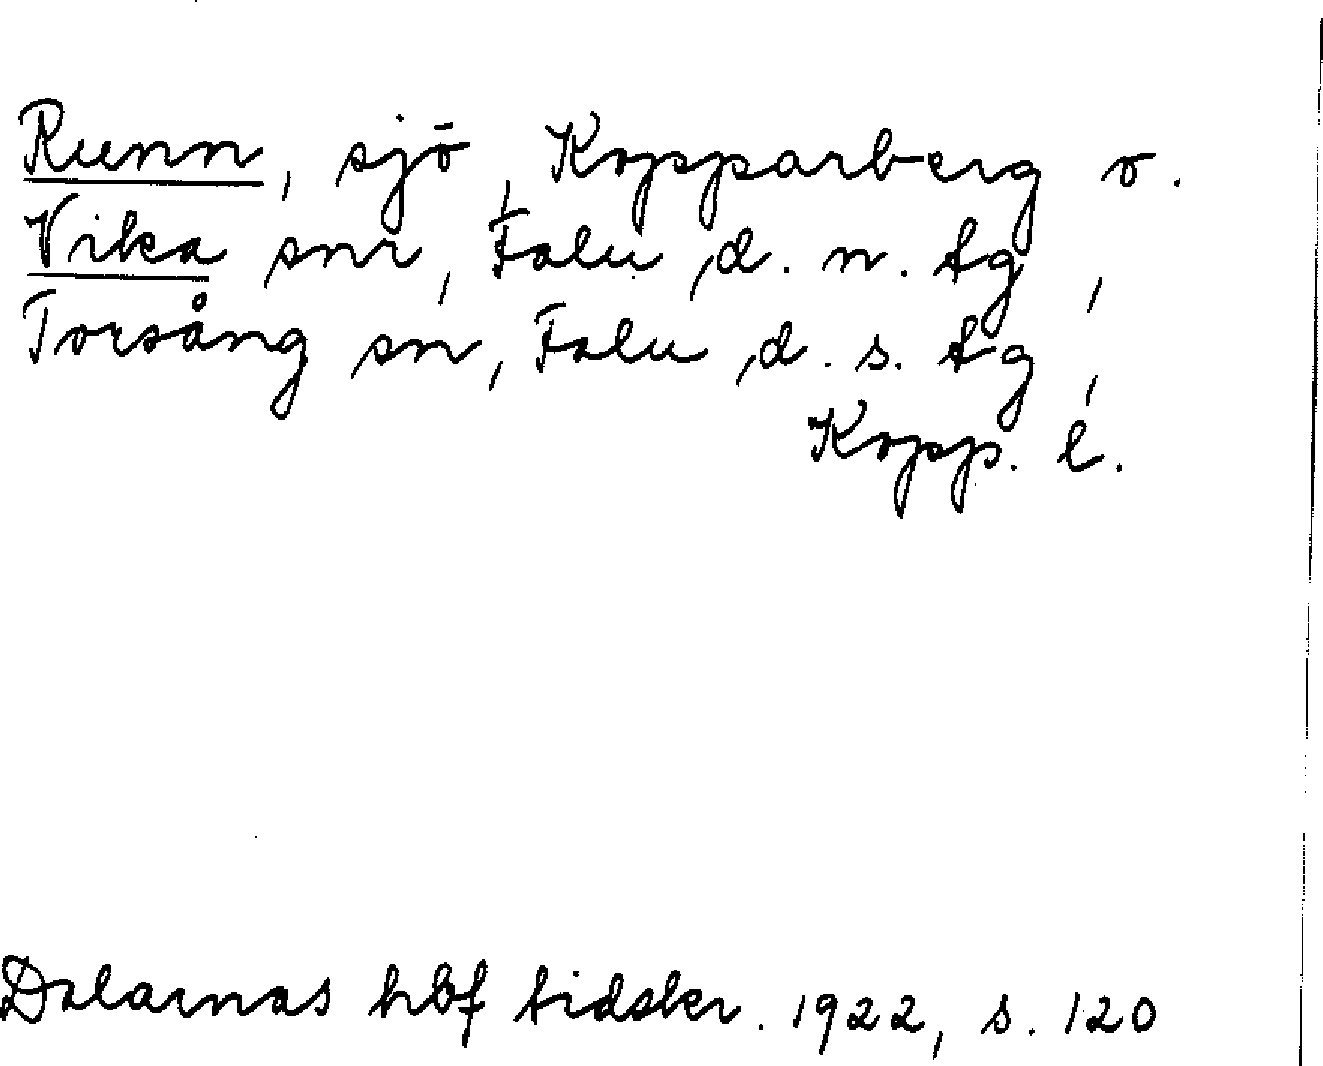 Runn, sjö, Kopparberg o.
Vika snr, Falu d. n. tg,
Torsång sn, Falu d. s. tg,
Kopp. l.
Dalarnas hbf tidskr. 1922, s. 120